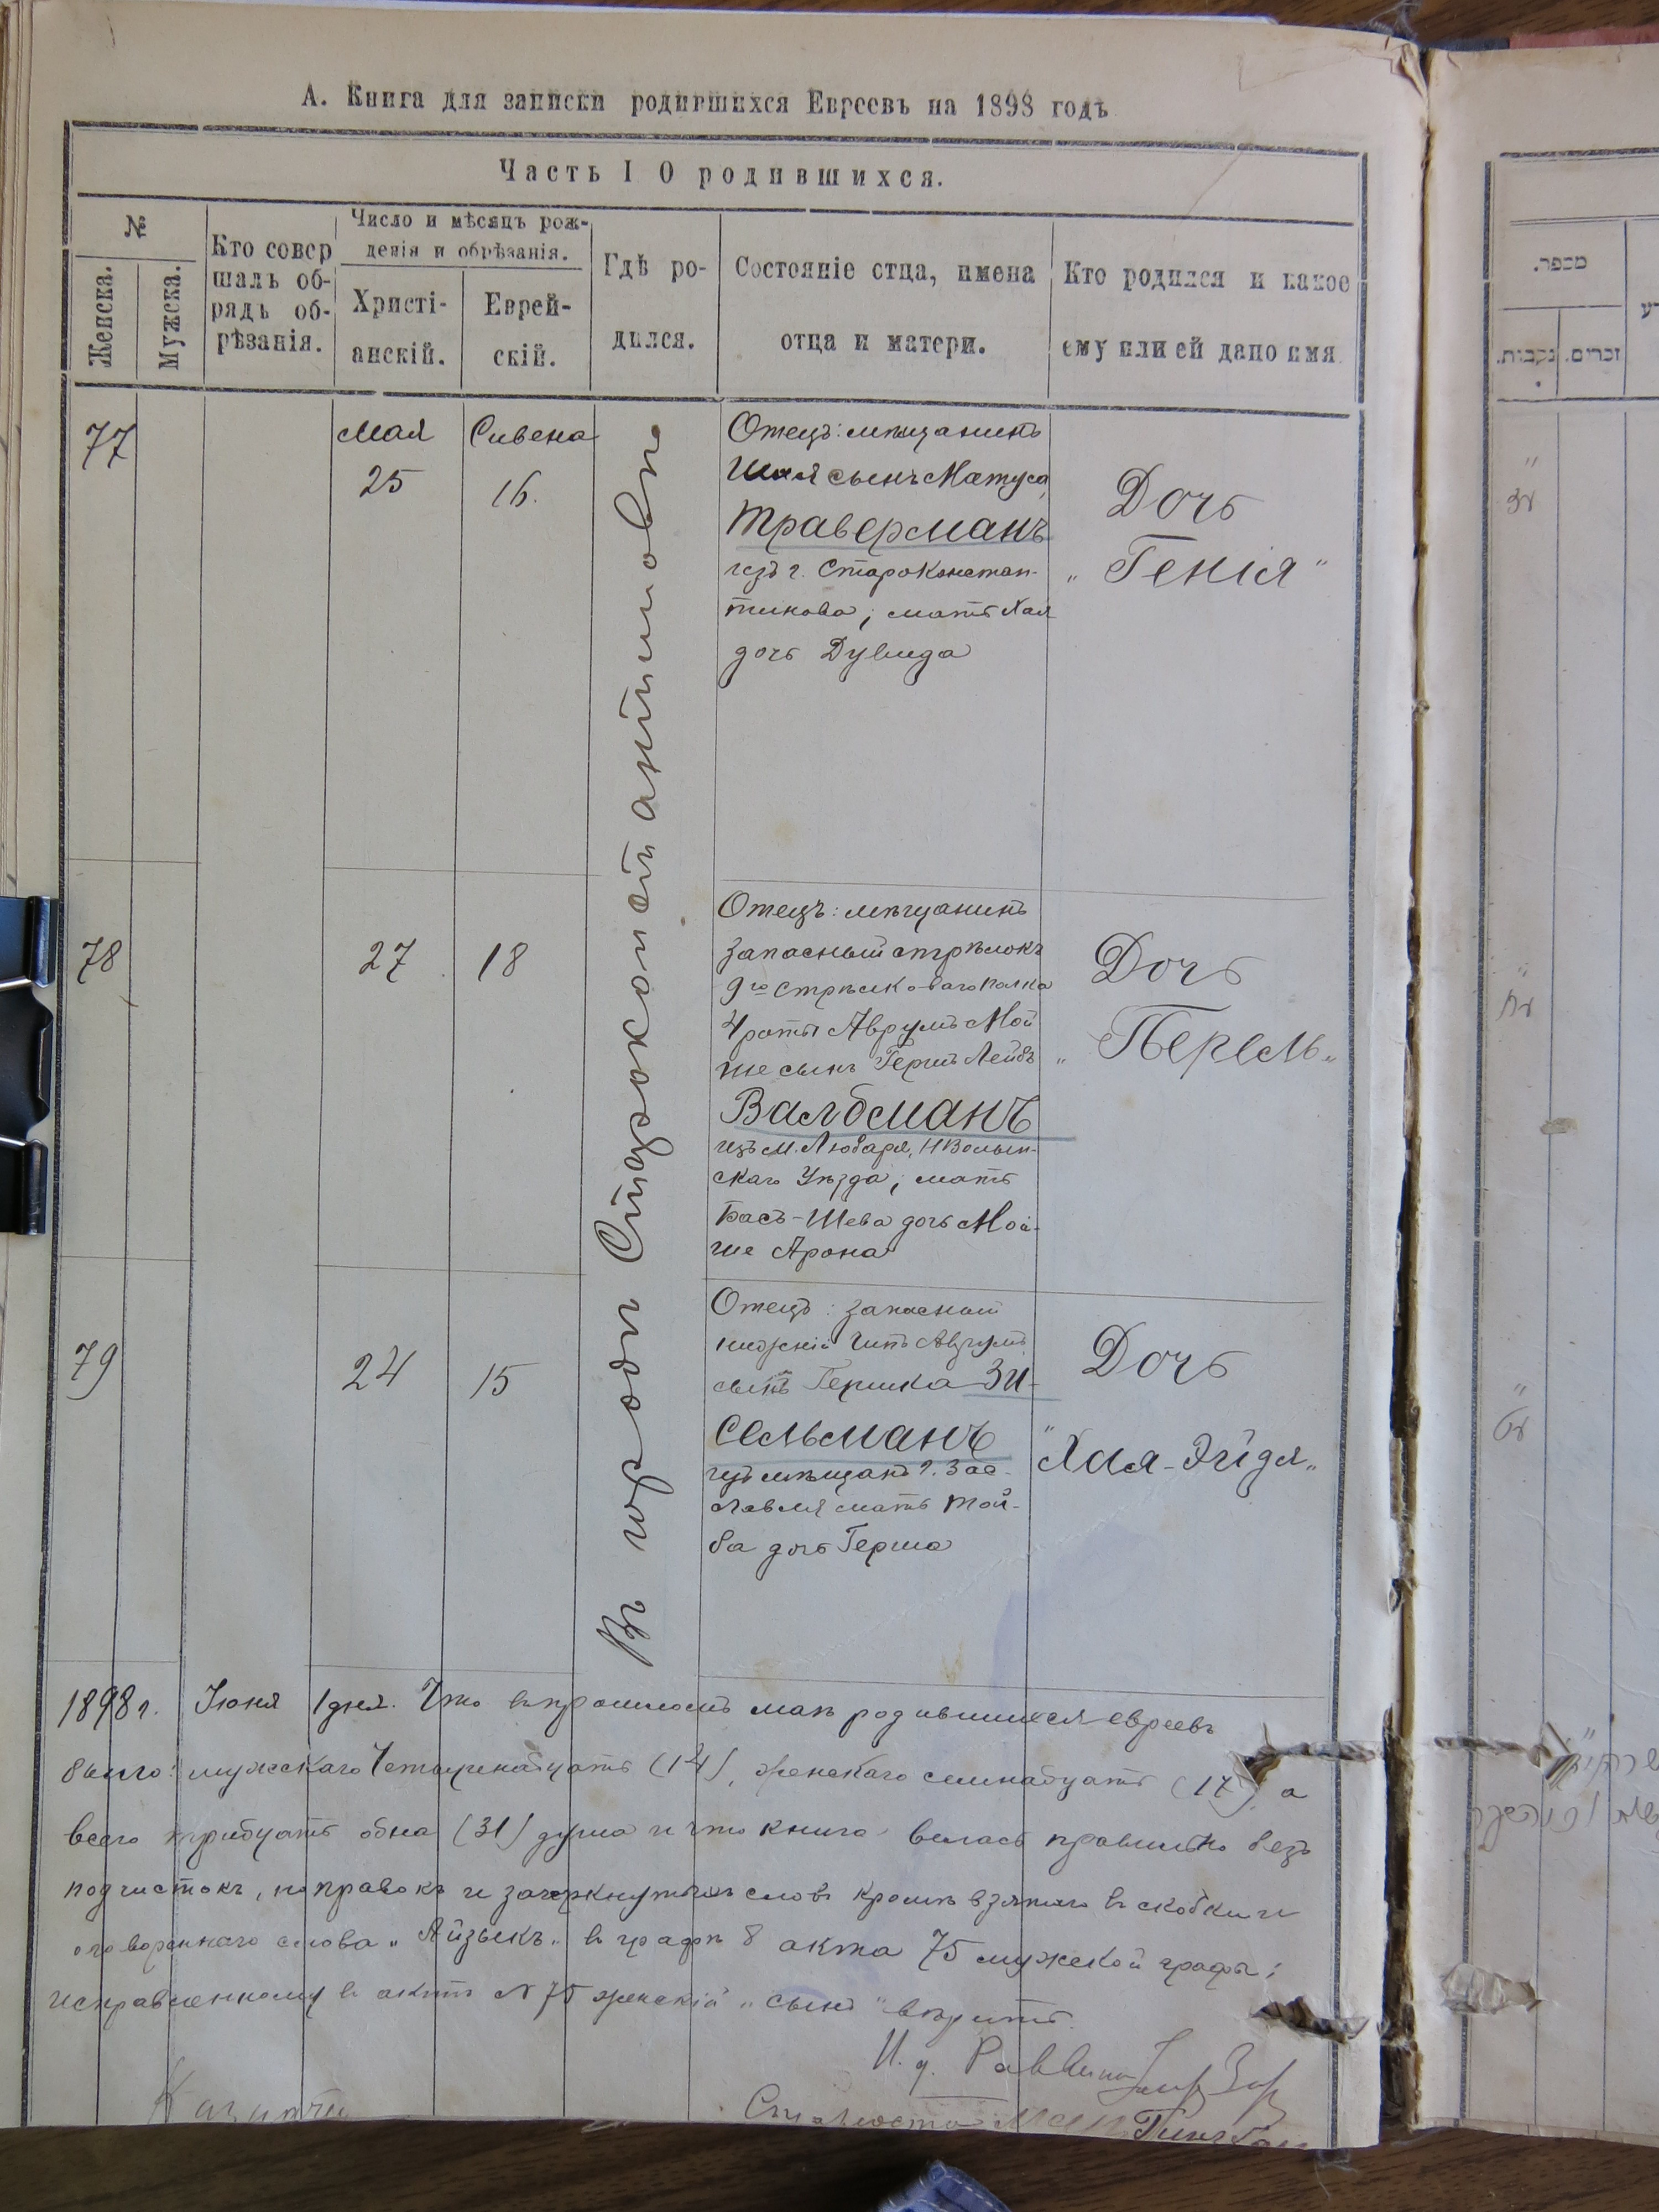 А. Книга для записки родившихся Евреевъ на 1898 годъ
Часть I О родившихся.
№
Женска.
Мужска.
Кто совер
шалъ об-
рядъ об-
рѣзанія.
Число и мѣсяцъ рож-
денія и обрѣзанія.
Христі-
анскій.
Еврей-
скій.
Гдѣ ро-
дился.
Состояніе отца, имена
отца и матери.
Кто родился и какое
ему или ей дано имя
77
Мая
25
Сивена
16.
Въ городѣ Староконстантиновѣ
Отецъ: мѣщанинъ
Шая сынъ Матуса
Траверманъ
изъ г. Староконстан-
тинова; мать Хая
дочь Дувида
Дочь
„Генія"
78
27
18
Отецъ: мѣщанинъ
запасный стрѣлокъ
9го стрѣлковаго полка
4 роты Аврумъ Мой
ше сынъ Гершъ Лейбъ
Вальдманъ
изъ м. Любаря, НВолын-
скаго Уѣзда; мать
Бась-Шева дочь Мой-
ше Арона
Дочь
„Перель„
79
24
15
Отецъ: запасный
нижній чинъ Аврумъ
сынъ Гершка Зи-
сельманъ
изъ мѣщанъ г. Зас-
лавля мать Той-
ба дочь Герша
Дочь
"Хая-Эйдя„
1898 г. Іюня 1 дня. Что въ прошломъ маѣ родившихся евреевъ
было: мужскаго четырнадцать (14), женскаго семнадцать (17), а
всего тридцать одна (31) душа и что книга велась правильно безъ
подчистокъ, поправокъ и зачеркнутыхъ словъ кромѣ взятаго въ скобки и
оговореннаго слова „Айзыкъ„ въ графѣ 8 акта 75 мужской графы;
исправленному въ актѣ №75 женскій „сынъ" вѣрить.
И. д. Раввина
Староста
מספר.
נקבות.
זכרים.